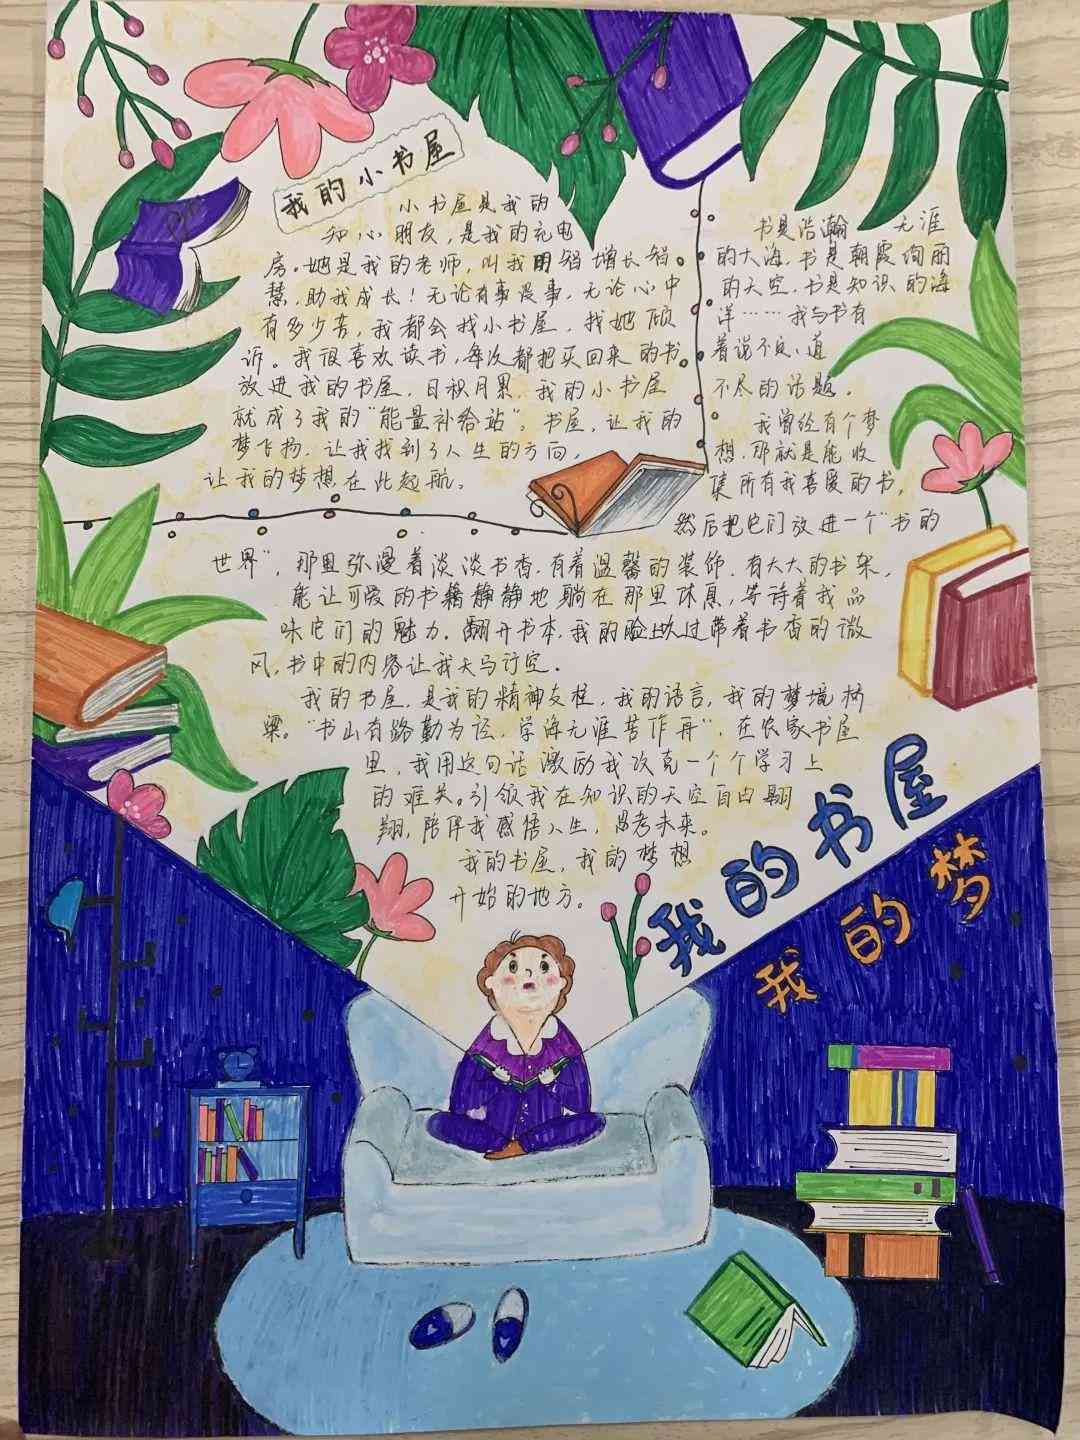 我的小书屋
小书屋是我的
知心朋友，是我的充电
房。她是我的老师，叫我用智增长智
慧，助我成长！无论有事没事，无论心中
有多少苦，我都会找小书屋，找她倾
诉。我很喜欢读书，每次都把买回来的书
放进我的书屋，日积月累，我的小书屋
就成了我的“能量补给站”。书屋，让我的
梦飞扬，让我找到了人生的方向，
让我的梦想在此起航。
书是浩瀚 无涯
的大海，书是朝霞绚丽
的天空，书是知识的海
洋……我与书有
着说不完、道
不尽的话题。
我曾经有个梦
想，那就是能收
集所有我喜爱的书，
然后把它们放进一个“书的
世界”，那里弥漫着淡淡书香，有着温馨的装饰，有大大的书架，
能让可爱的书籍静静地躺在那里休息，等待着我品
味它们的魅力。翻开书本，我的脸上吹过带着书香的微
风，书中的内容让我天马行空。
我的书屋，是我的精神支柱，我的语言，我的梦境桥
梁。“书山有路勤为径，学海无涯苦作舟”，在农家书屋
里，我用这句话激励我攻克一个个学习上
的难关。引领我在知识的天空自由翱
翔，陪伴我感悟人生，思考未来。
我的书屋，我的梦想
开始的地方。
我的书屋
我的梦